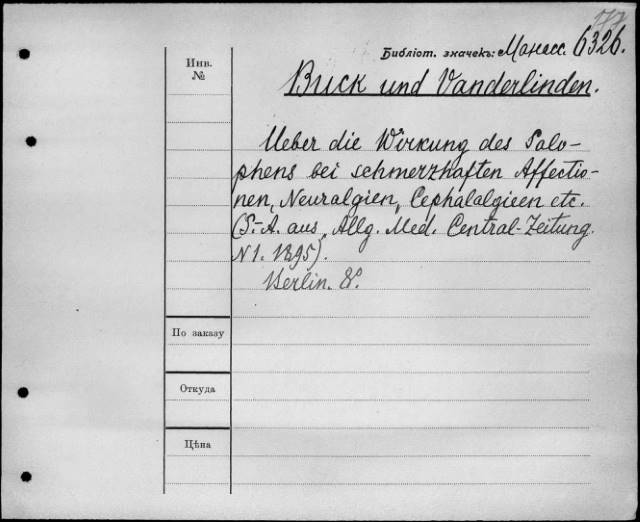 Библіот. значекъ: Манасс. 6326.
Инв.
№
Buck und Vanderlinden.
Ueber die Wirkung des Salo-
phens bei schmerzhaften Affectio-
nen, Neuralgien, Cephalalgieen etc.
(S.-A. aus „Allg. Med. Central-Zeitung.
N 1. 1895).
Berlin. 8°.
По заказу
Откуда
Цѣна